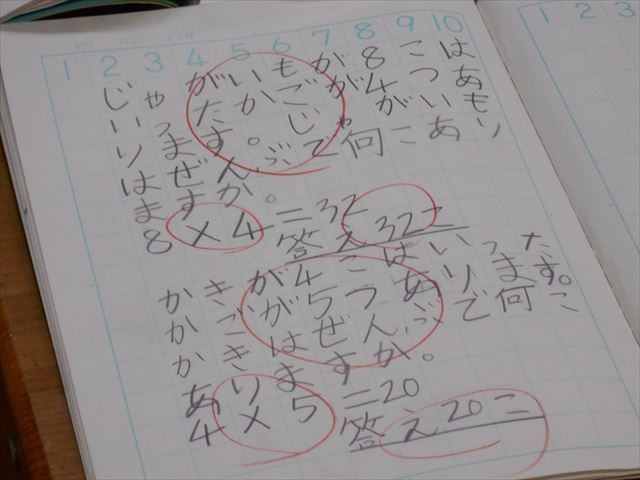 1 2 3 4 5 6 7 8 9 10
1 2 3
じゃがいもが8こは
いったかごが4つあ
ります。じゃがいも
はぜんぶで何こあり
ますか。
8×4=32
答え32こ
かきが4こはいった
かごが5つあります。
かきはぜんぶで何こ
ありますか。
4×5=20
答え20こ